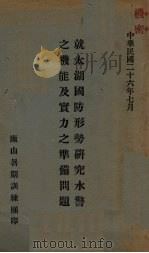 機密
中華民國二十六年七月
就太湖國防形勢研究水警
之機能及實力之準備問題
廬山暑期訓練團印